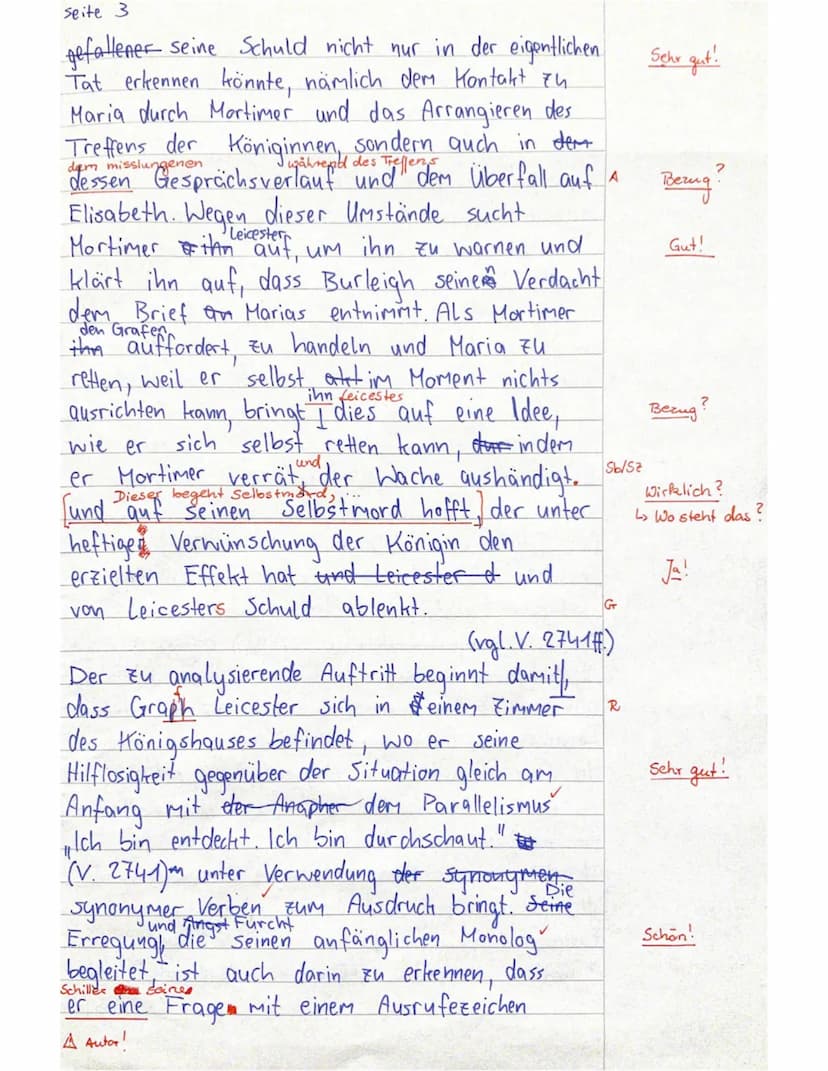 Seite 3
gefallener seine Schuld nicht nur in der eigentlichen
Sehr gut!
Tat erkennen könnte, nämlich dem Kontakt zu
Maria durch Mortimer und das Arrangieren des
Treffens der Königinnen, sondern auch in dem
dem misslungenen während des Treffens
dessen Gesprächsverlauf und dem Überfall auf A
Bezug?
Elisabeth. Wegen dieser Umstände sucht
Leicester
Mortimer ihn auf, um ihn zu warnen und
Gut!
klärt ihn auf, dass Burleigh seinen Verdacht
dem Brief an Marias entnimmt. Als Mortimer
den Grafen
ihn auffordert, zu handeln und Maria zu
retten, weil er selbst akt im Moment nichts
ihn Leicestes
ausrichten kann, bringt dies auf eine Idee,
Bezug?
wie er sich selbst retten kann, dur indem
und
er Mortimer verrät, der Wache aushändigt. Sb/Sz
Dieser begeht Selbstmord, ...
Wirklich?
[und auf seinen Selbstmord hofft,] der unter
↳ Wo steht das?
heftiger Verwünschung der Königin den
erzielten Effekt hat und Leicester d und
Ja!
von Leicesters Schuld ablenkt. G
(vgl. V. 2741ff.)
Der zu analysierende Auftritt beginnt damit,
f
dass Graph Leicester sich in einem Zimmer R
des Königshauses befindet, wo er seine
Hilflosigkeit gegenüber der Situation gleich am
Sehr gut!
Anfang mit der Anapher dem Parallelismus ✓
„Ich bin entdeckt. Ich bin durchschaut."
(V. 2741) unter Verwendung der Synonymen
Die
synonymer Verben ✓ zum Ausdruck bringt. Seine
und Angst Furcht
Erregung, die seinen anfänglichen Monolog ✓
Schön!
begleitet, ist auch darin zu erkennen, dass
Schiller seine
er eine Frage mit einem Ausrufezeichen
⚠ Autor!